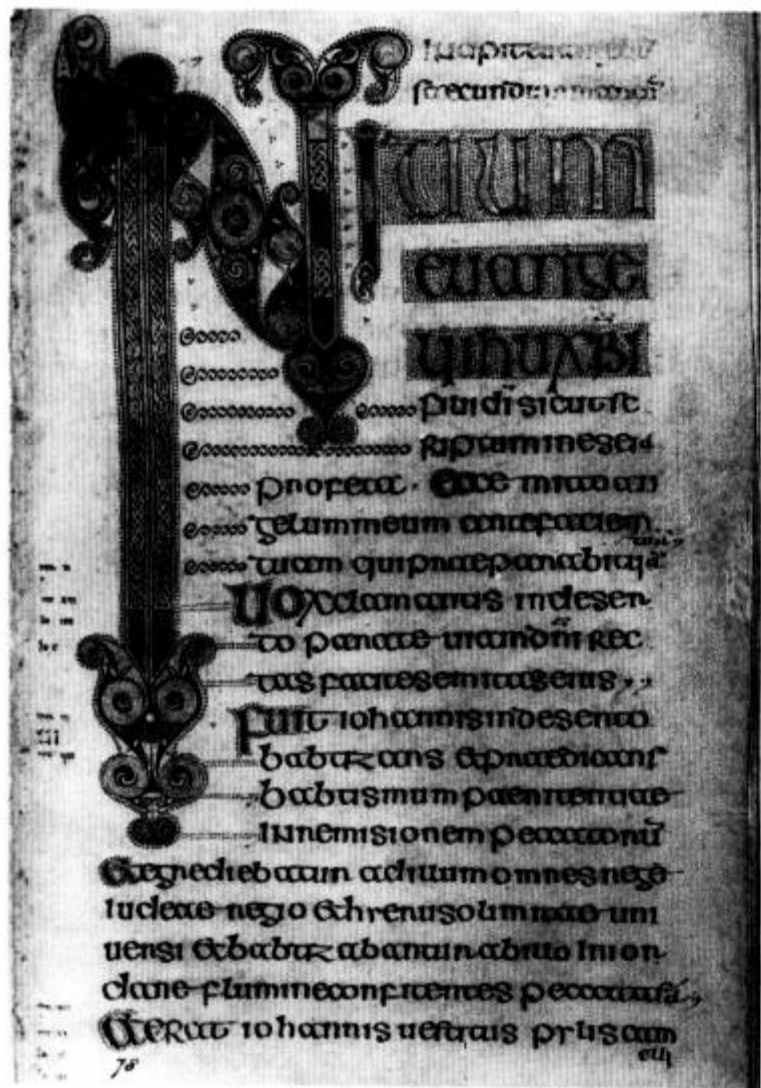 secundum marcū
INITIUM
euange
lii ihu xpi
filii dī sicut sc
riptum in esaia
profeta · Ecce mitto an
gelum meum ante faciem
tuam qui praeparabit
Vox clamantis in deser
to parate uiam dn̄i rec
tas facite semitas eius
Fuit iohannis in deserto
babtizans et praedicans
babtismum paenitentiae
in remisionem peccatorū
Et egrediebatur ad illum omnes
iudeae regio et uni
uersi et babtizabantur ab illo in ior
dane flumine confitentes peccata sua
Et erat iohannis uestitus pylis cam
eli
78